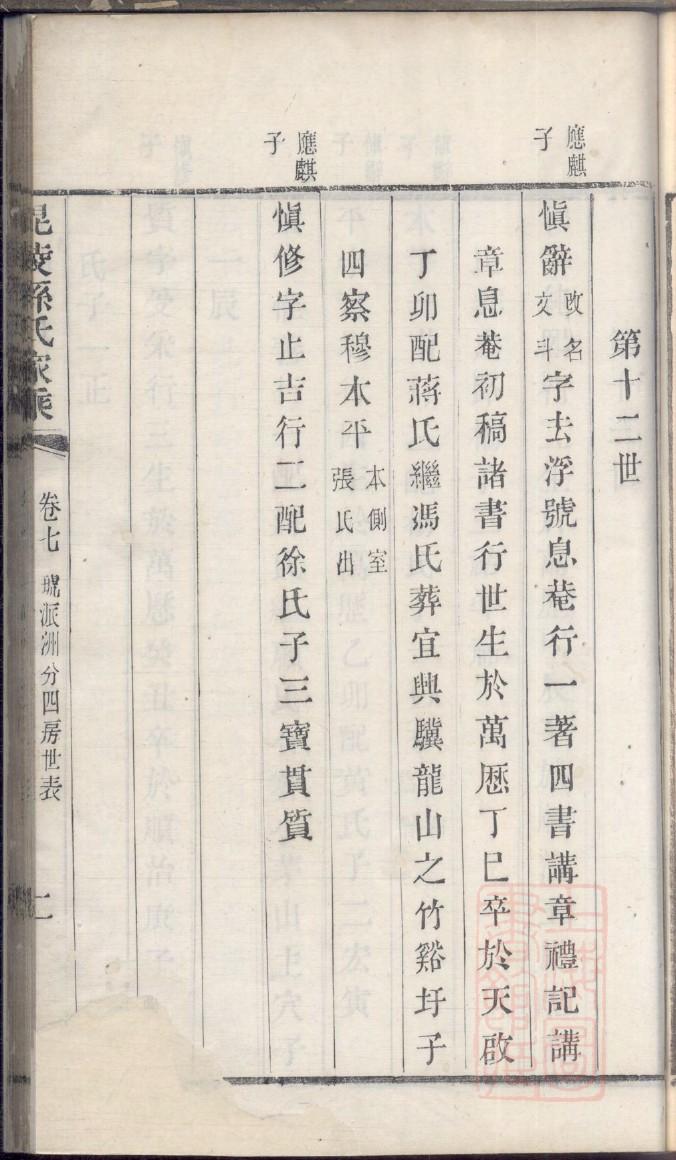 第十二世
應麒子
愼辭改名文斗字去浮號息菴行一著四書講章禮記講
章息菴初稿諸書行世生於萬厯丁巳卒於天啟
丁卯配蔣氏繼馮氏葬宜興驥龍山之竹谿圩子
四察穆本平本側室張氏出
應麒子
愼修字止吉行二配徐氏子三寶貫質
毘陵孫氏家乘
卷七 琥派洲分四房世表
二